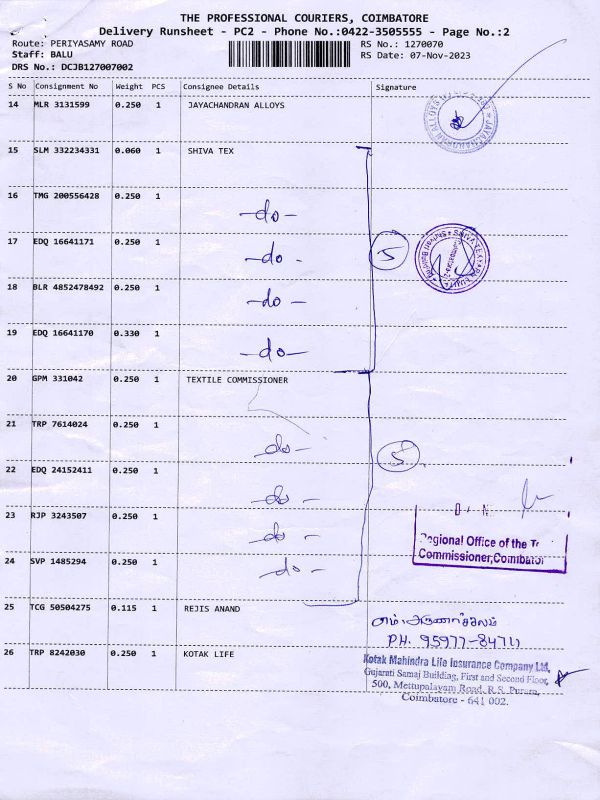 THE PROFESSIONAL COURIERS, COIMBATORE
Delivery Runsheet - PC2 - Phone No.:0422-3505555 - Page No.:2
Route: PERIYASAMY ROAD RS No.: 1270070
Staff: BALU RS Date: 07-Nov-2023
DRS No.: DCJB127007002
S No Consignment No Weight PCS Consignee Details Signature
14 MLR 3131599 0.250 1 JAYACHANDRAN ALLOYS
15 SLM 332234331 0.060 1 SHIVA TEX
16 TMG 200556428 0.250 1
-do-
17 EDQ 16641171 0.250 1
-do- 5
18 BLR 4852478492 0.250 1
-do-
19 EDQ 16641170 0.330 1
-do-
20 GPM 331042 0.250 1 TEXTILE COMMISSIONER
21 TRP 7614024 0.250 1
do - 5
22 EDQ 24152411 0.250 1
do -
23 RJP 3243507 0.250 1
do -
Regional Office of the
Commissioner,Coimbator
24 SVP 1485294 0.250 1
-do -
25 TCG 50504275 0.115 1 REJIS ANAND
எம்.அருணாச்சலம்
PH. 95977-84711
26 TRP 8242030 0.250 1 KOTAK LIFE
Kotak Mahindra Life Insurance Company Ltd,
Gujarati Samaj Building, First and Second Floor,
500, Mettupalayam Road, R.S. Puram,
Coimbatore - 641 002.